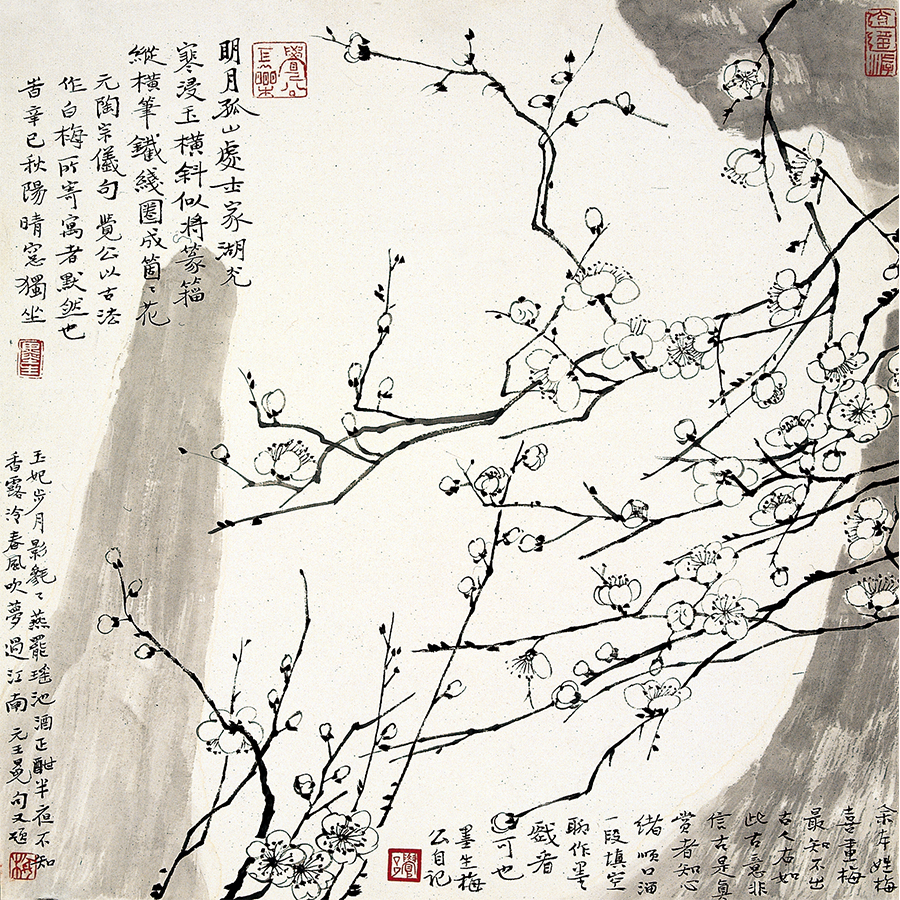 明月孤山處士家湖光
寒浸玉橫斜似將篆籀
縱橫筆鐵綫圈成箇〻花
元陶宗儀句 覺公以古法
作白梅所寄寓者默然也
昔辛巳秋陽晴窓獨坐
玉妃步月影毿〻燕罷瑤池酒正酣半夜不知
香露冷春風吹夢過江南 元王冕句又題
余本姓梅
喜畫梅
最知不出
古人右如
此古意非
信古是真
賞者知心
緒順口溜
一段填空
聊作墨
戲看
可也
墨生梅
公自記